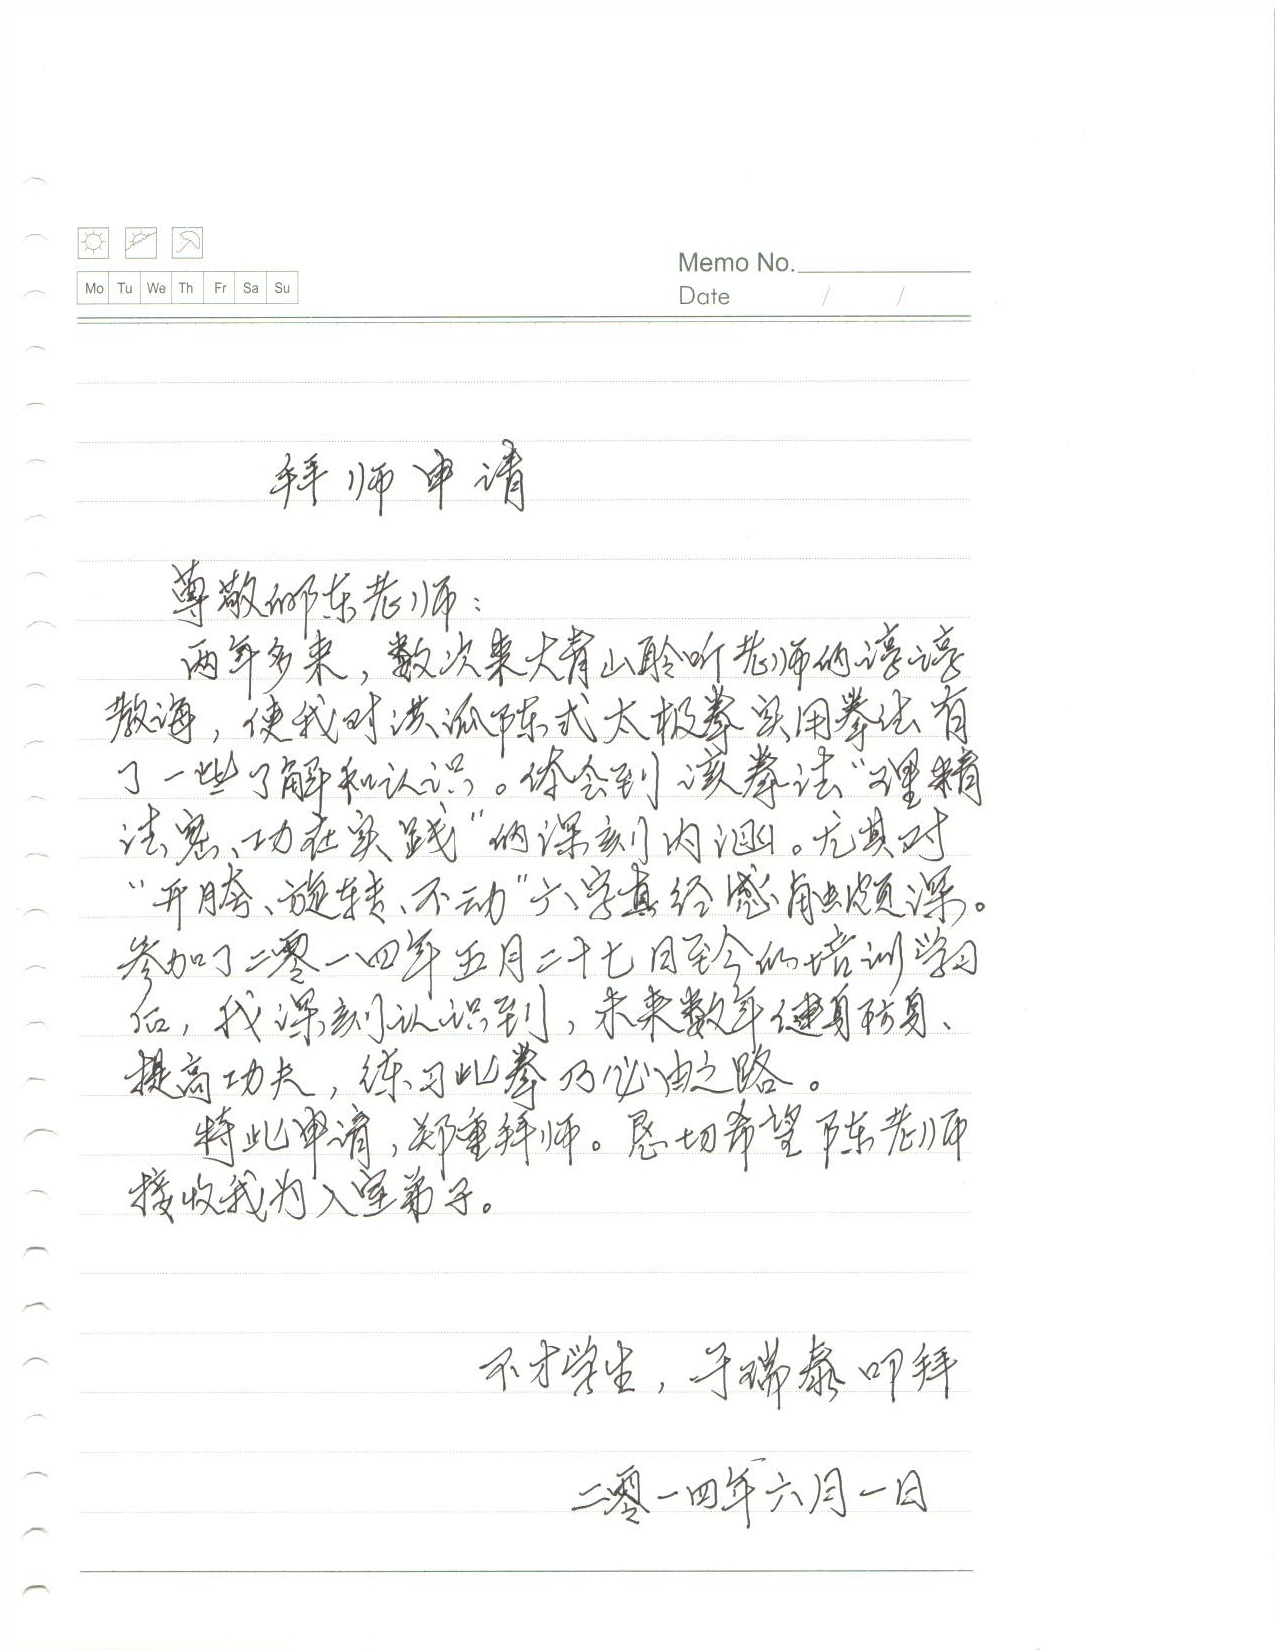 Memo No.
Mo Tu We Th Fr Sa Su
Date / /
拜师申请
尊敬的陈老师：
两年多来，数次来大青山聆听老师的谆谆
教诲，使我对洪派陈式太极拳实用拳法有
了一些了解和认识。体会到该拳法“理精
法密、功在实践”的深刻内涵。尤其对
“开胯、旋转、不动”六字真经感触颇深。
参加了二零一四年五月二十七日至今的培训学习
后，我深刻认识到，未来数年健身防身、
提高功夫，练习此拳乃必由之路。
特此申请，郑重拜师。恳切希望陈老师
接收我为入室弟子。
不才学生，于瑞泰叩拜
二零一四年六月一日